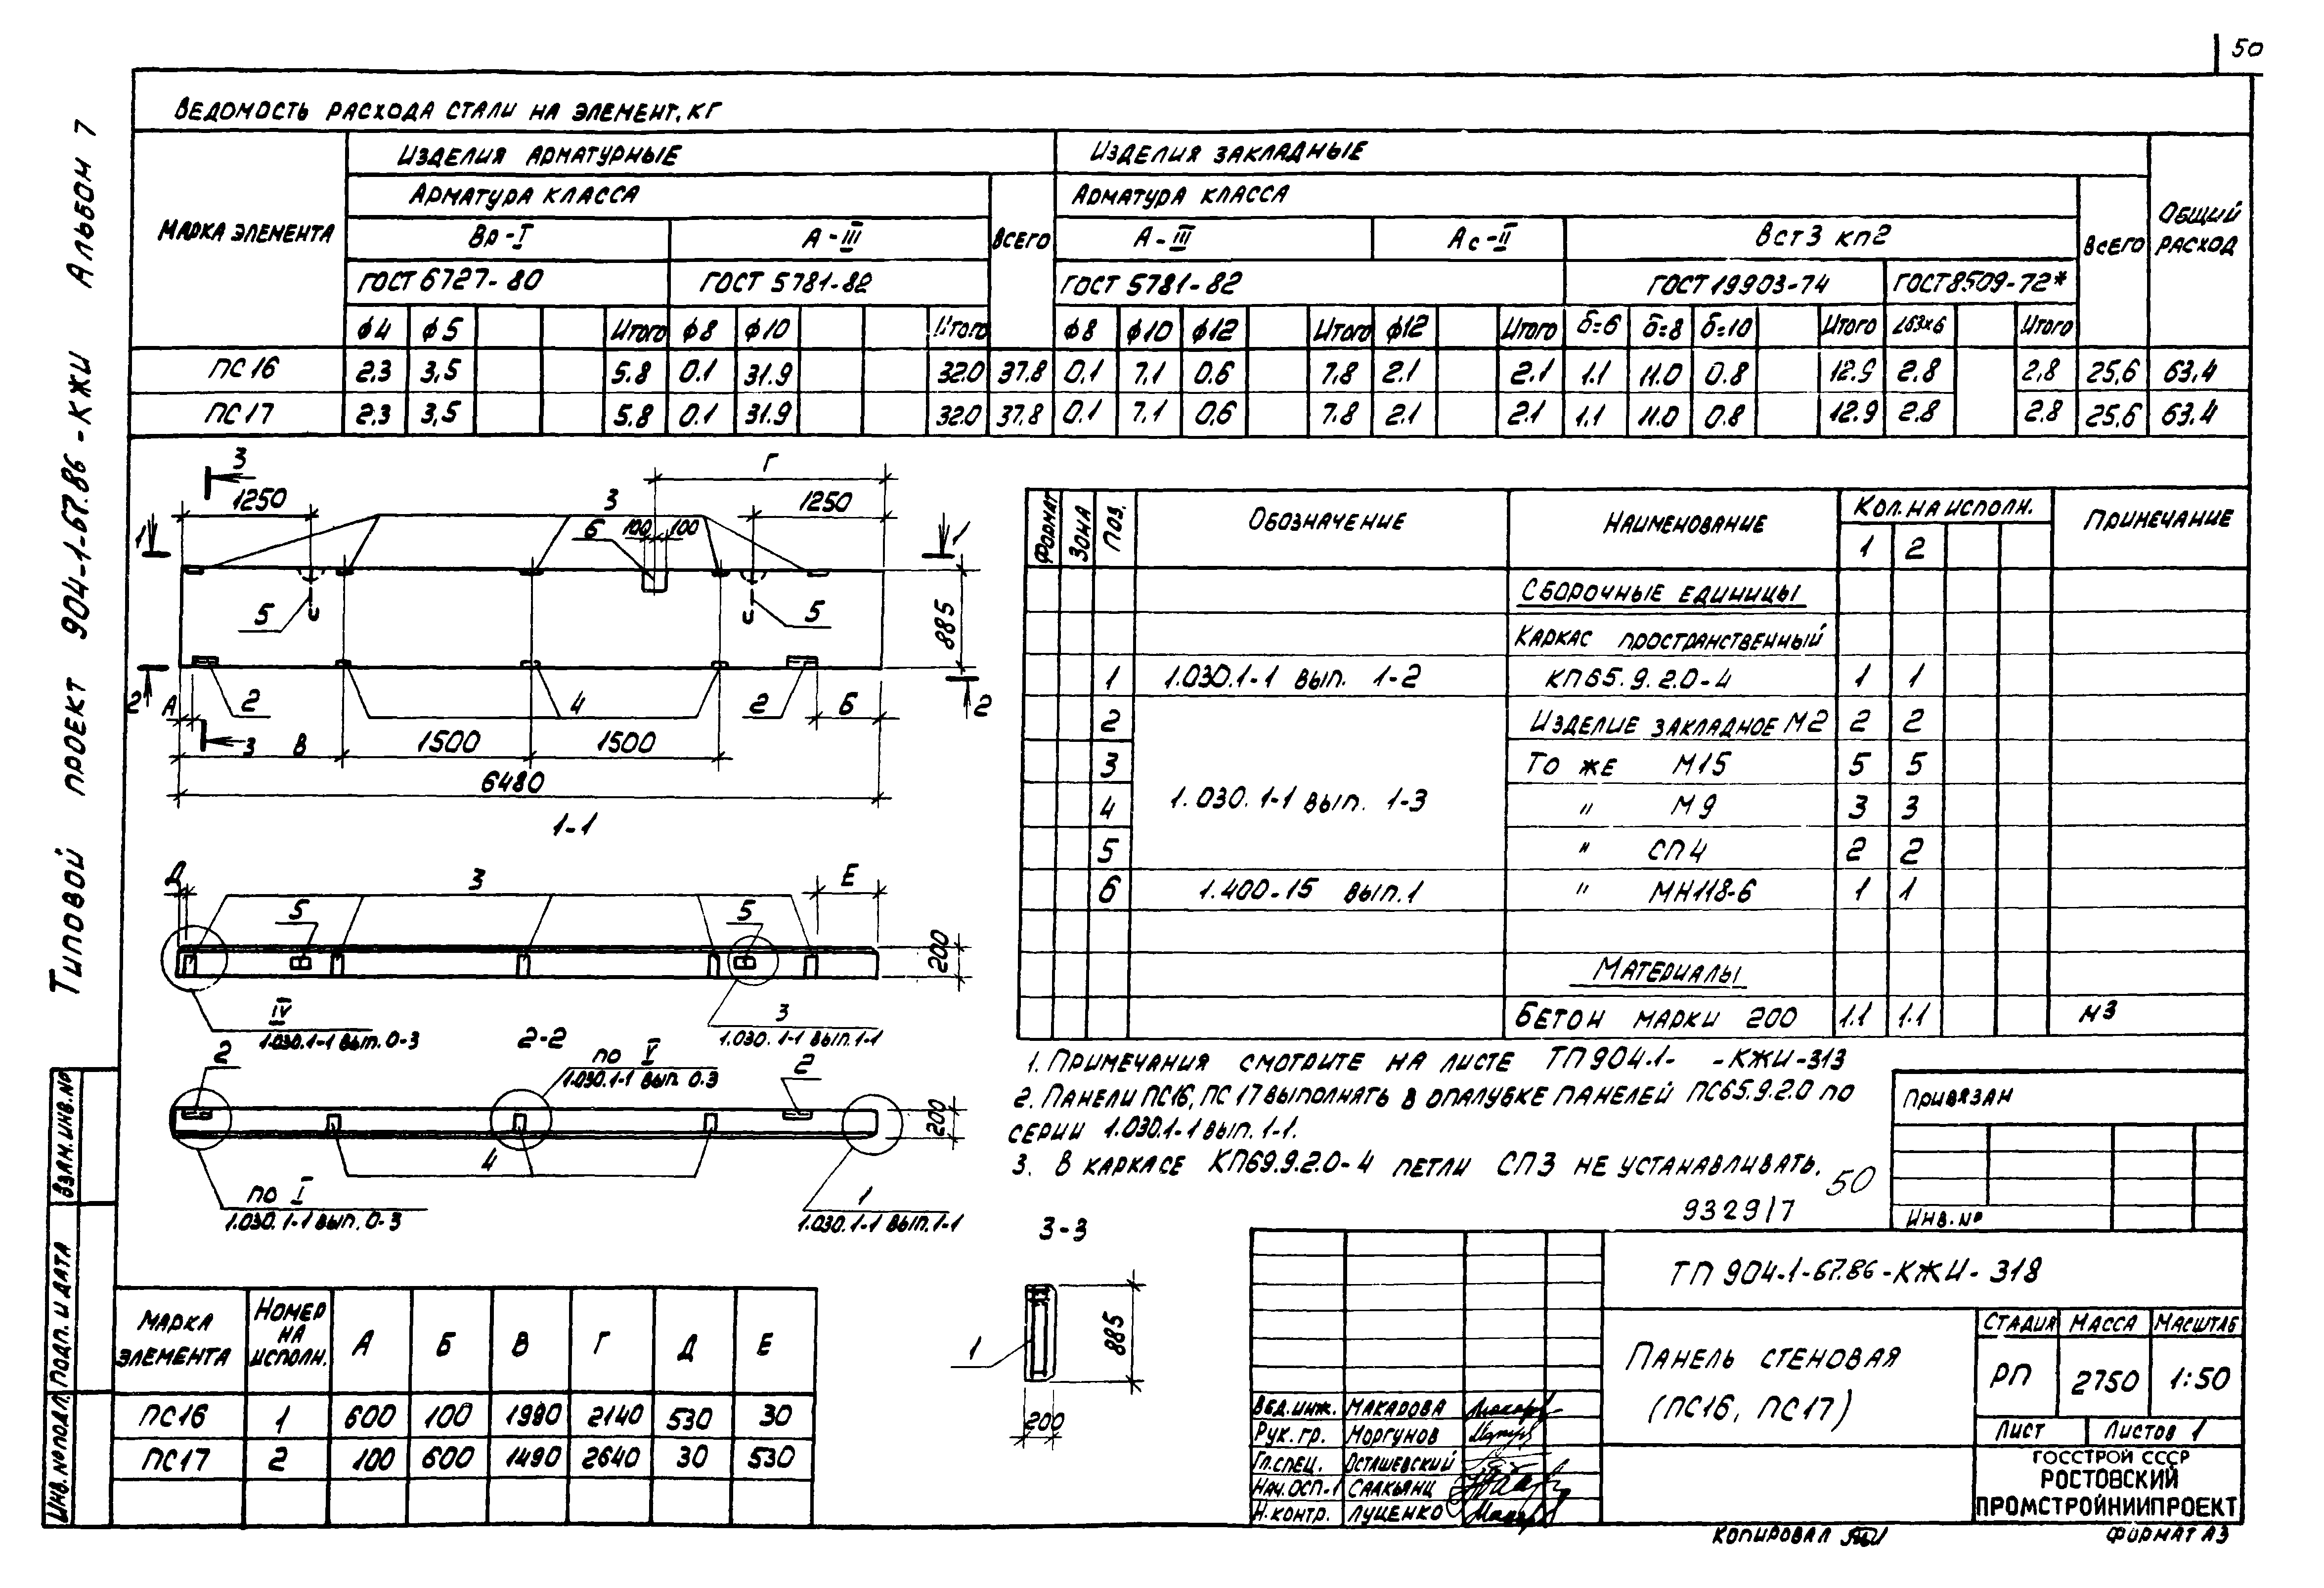 50
Типовой проект 904-1-67.86-КЖИ Альбом 7
Ведомость расхода стали на элемент, кг
Марка элемента
Изделия арматурные
Изделия закладные
Общий расход
Арматура класса
Всего
Арматура класса
Всего
Вр-I
А-III
А-III
Ас-II
Вст3 кп2
ГОСТ 6727-80
ГОСТ 5781-82
ГОСТ 5781-82
ГОСТ 19903-74
ГОСТ 8509-72*
ф4 ф5 Итого ф8 ф10 Итого ф8 ф10 ф12 Итого ф12 Итого δ=6 δ=8 δ=10 Итого L63x6 Итого
ПС16 2.3 3,5 5.8 0.1 31.9 32.0 37.8 0.1 7.1 0.6 7.8 2.1 2.1 1.1 11.0 0.8 12.9 2.8 2,8 25,6 63,4
ПС17 2.3 3,5 5.8 0.1 31.9 32.0 37.8 0.1 7.1 0,6 7.8 2.1 2.1 1.1 11.0 0.8 12.9 2.8 2.8 25,6 63.4
3 Г
1250 3 1250
1 6 100 100 1
5 5
885
2 А 2 4 2 Б 2
3 В 1500 1500
6480
1-1
Д 3 Е
5 5
200
IV
1.030.1-1 вып. 0-3
3
1.030.1-1 вып. 1-1
2-2
2 по V
1.030.1-1 вып 0.3
2
200
4
по I
1.030.1-1 вып. 0-3
1
1.030.1-1 вып. 1-1
3-3
1
885
200
Формат Зона Поз. Обозначение Наименование Кол. на исполн. Примечание
1 2
Сборочные единицы
Каркас пространственный
1 1.030.1-1 вып. 1-2 КП65.9.2.0-4 1 1
2 Изделие закладное М2 2 2
3 То же М15 5 5
1.030.1-1 вып. 1-3
4 " М9 3 3
5 " СП4 2 2
6 1.400-15 вып.1 " МН118-6 1 1
Материалы
Бетон марки 200 1.1 1.1 м3
1. Примечания смотрите на листе ТП904.1- -КЖИ-313
2. Панели ПС16, ПС17 выполнять в опалубке панелей ПС65.9.2.0 по
серии 1.030.1-1 вып. 1-1.
3. В каркасе КП69.9.2.0-4 петли СП3 не устанавливать.
50
9329/7
Привязан
Инв. №
Марка элемента Номер на исполн. А Б В Г Д Е
ПС16 1 600 100 1990 2140 530 30
ПС17 2 100 600 1490 2640 30 530
Взам. инв. №
Подп. и дата
Инв. № подл.
ТП 904-1-67.86-КЖИ-318
Панель стеновая
(ПС16, ПС17)
Стадия Масса Масштаб
РП 2750 1:50
Лист Листов 1
ГОССТРОЙ СССР
РОСТОВСКИЙ
ПРОМСТРОЙНИИПРОЕКТ
Вед.инж. Макарова
Рук. гр. Моргунов
Гл.спец. Осташевский
Нач.осп.-1 Саакьянц
Н.контр. Луценко
Копировал
Формат А3